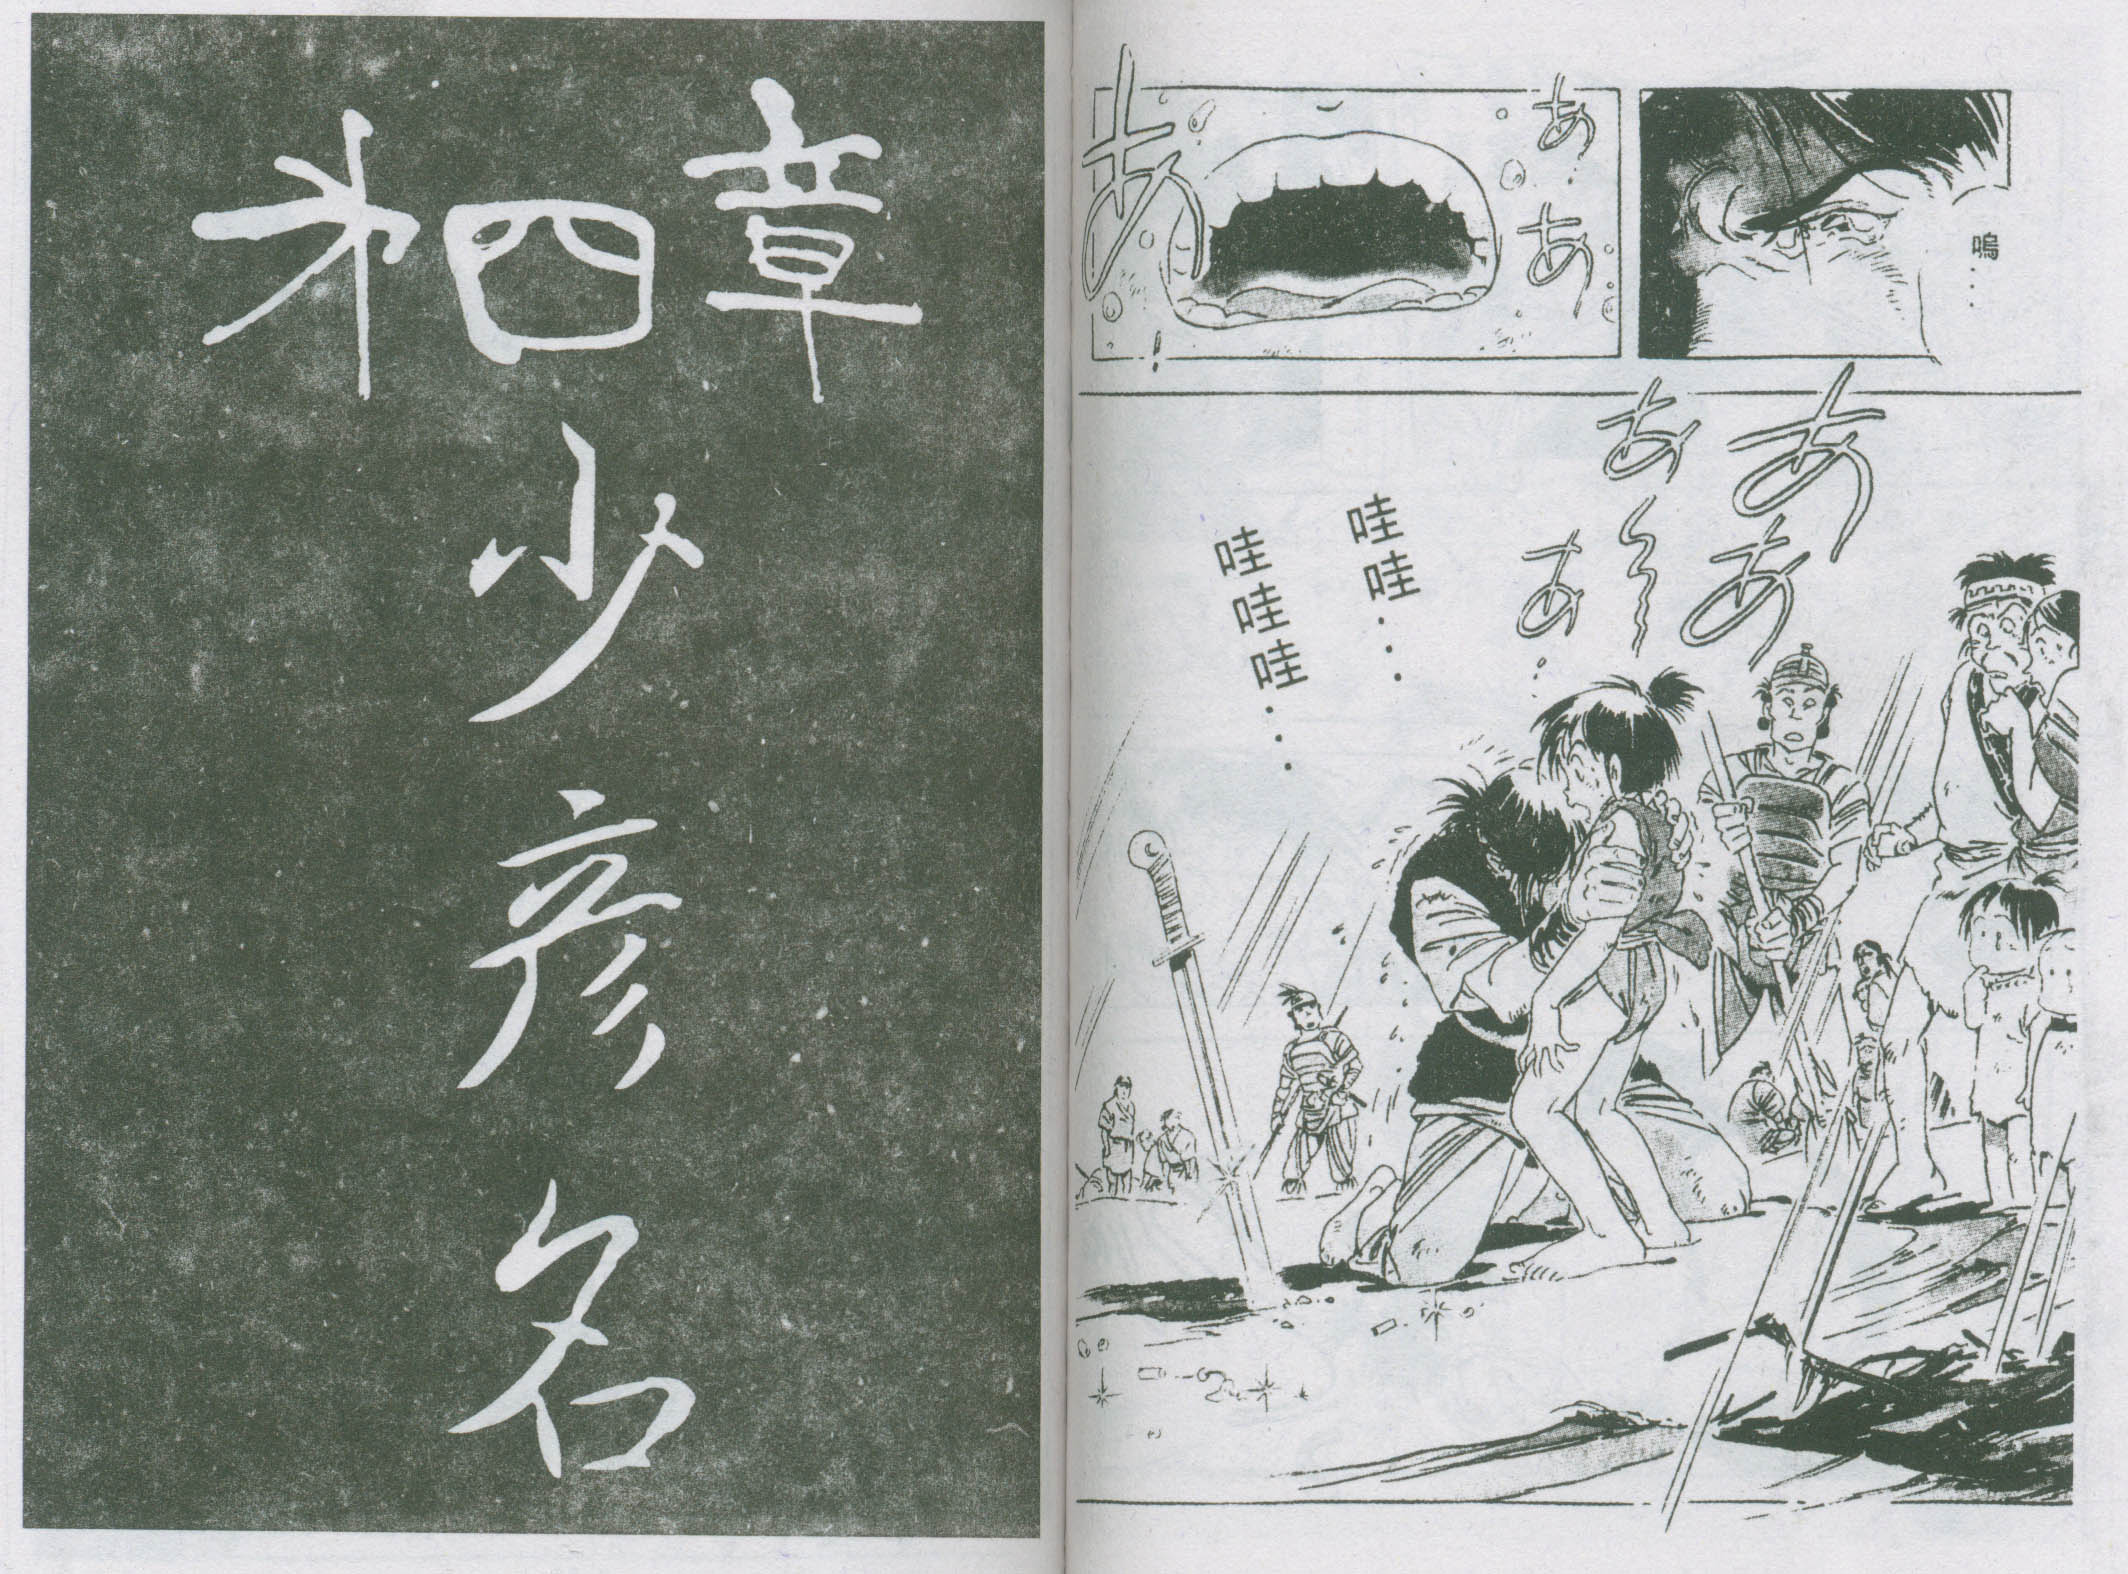 嗚…
ああ
あ
ああ
あ〜
あ…
哇哇…
哇哇哇…
第四章
少彥名